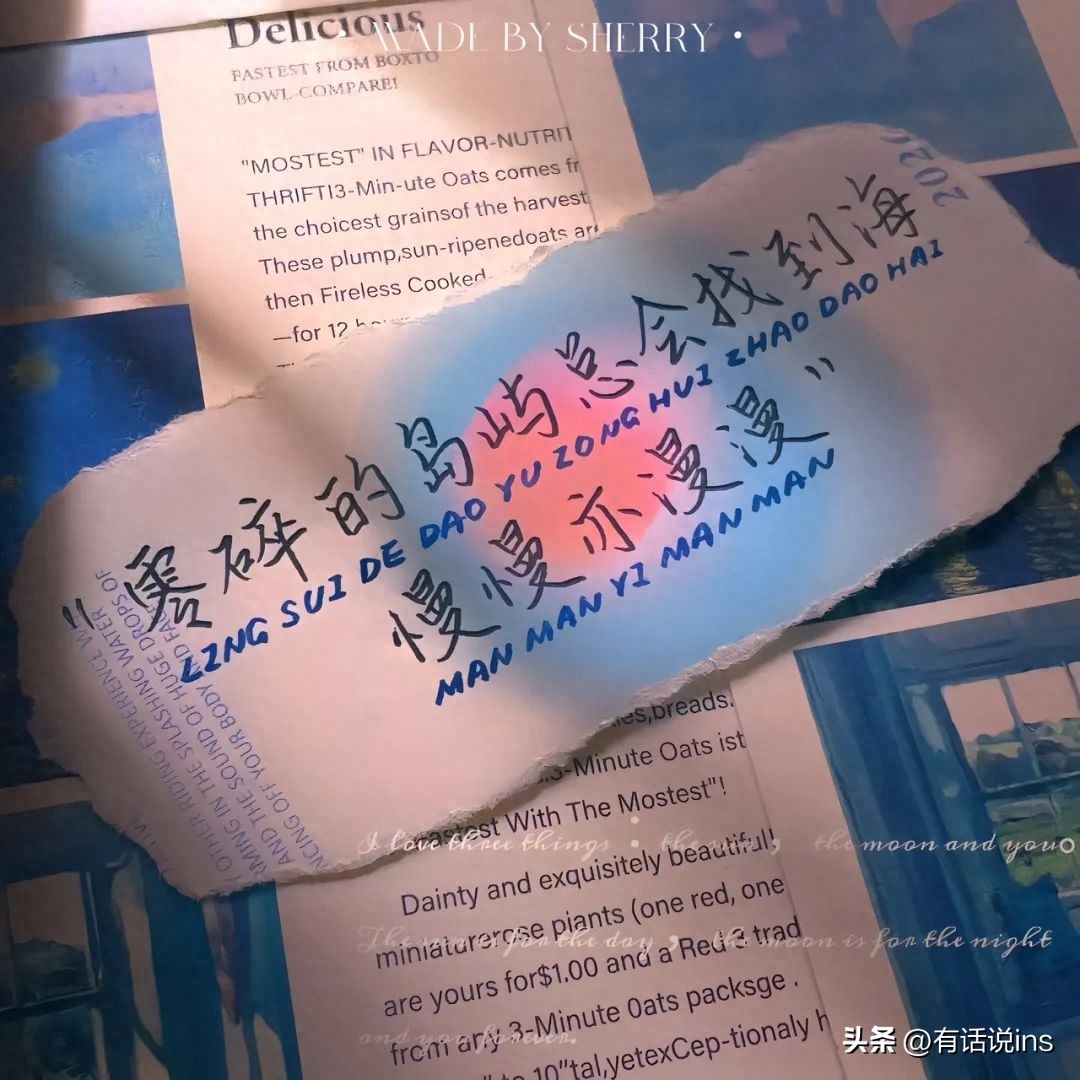 Delicious
WADE BY SHERRY •
FASTEST FROM BOXTO
BOWL-COMPARE!
"MOSTEST" IN FLAVOR-NUTRIT
THRIFTI3-Min-ute Oats comes fr
the choicest grainsof the harvest
These plump,sun-ripenedoats are
then Fireless Cooked
—for 12 hours
2020
"零碎的岛屿总会找到海
LING SUI DE DAO YU ZONG HUI ZHAO DAO HAI
慢慢亦漫漫"
MAN MAN YI MAN MAN
OTHER RIDING EXPERIENCE W
MING IN THE SPLASHING WATER
AND THE SOUND OF HUGE DROPS OF
NCING OFF YOUR BODY AND FACE
es,breads.
3-Minute Oats ist
Fastest With The Mostest"!
I love three things • the sun, the moon and you。
Dainty and exquisitely beautiful!
miniaturerose piants (one red, one
The sun is for the day, the moon is for the night
are yours for$1.00 and a Red trad
from any 3-Minute 0ats packsge .
and you forever.
to 10"tal,yetexCep-tionaly h
头条 @有话说ins